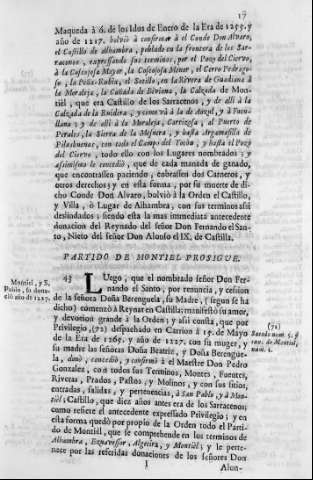 17
Maqueda à 6. de los Idus de Enero de la Era de 1255. y
año de 1217. bolviò à confirmar à el Conde Don Alvaro,
el Castillo de Alhambra, poblado en la frontera de los Sar-
racenos, expressando sus terminos, por el Pozo del Ciervo,
à la Coscojosa Mayor, la Coscojosa Menor, el Cerro Pedrego-
so, la Peña-Rubia, el Sotillo, en la Rivera de Guadiana à
la Moraleja, la Cañada de Beviena, la Calzada de Mon-
tiel, que era Castillo de los Sarracenos, y de allì à la
Calzada de la Ruidera, y como và à la de Angel, y à Fuen-
llana; y de allì à la Moraleja, Carrizosa, al Puerto de
Perales, la Sierra de la Mesnera, y hasta Argamasilla de
Pilasbuenas, con todo el Campo del Tocho, y hasta el Pozo
del Ciervo, todo ello con los Lugares nombrados; y
assimismo le concediò, que de cada manada de ganado,
que encontrassen paciendo, cobrassen dos Carneros, y
otros derechos; y en esta forma, por su muerte de di-
cho Conde Don Alvaro, bolviò en la Orden el Castillo,
y Villa, ò Lugar de Alhambra, con sus terminos assi
deslindados; siendo esta la mas immediata antecedente
donacion del Reynado del señor Don Fernando el San-
to, Nieto del señor Don Alonso el IX. de Castilla.
PARTIDO DE MONTIEL PROSIGUE.
Montiel, y S.
Pablo, su dona-
ciò año de 1227.
43 LUego, que el nombrado señor Don Fer-
nando el Santo, por renuncia, y cession
de la señora Doña Berenguela, su Madre, (segun se ha
dicho) comenzò à Reynar en Castilla; manifestò su amor,
y devocion grande à la Orden; y assi consta, que por
Privilegio, (72) despachado en Carrion à 15. de Mayo
de la Era de 1265. y año de 1227. con su muger, y
su madre las señoras Doña Beatriz, y Doña Berengue-
la, donò, concediò, y confirmò à el Maestre Don Pedro
Gonzalez, con todos sus Terminos, Montes, Fuentes,
Riveras, Prados, Pastos, y Molinos, y con sus sitios,
entradas, salidas, y pertenencias, à San Pablo, y à Mon-
tiel; Castillo, que diez años antes era de los Sarracenos;
como refiere el antecedente expressado Privilegio; y en
esta forma quedò por propio de la Orden todo el Parti-
do de Montiel, que se comprehende en los terminos de
Alhambra, Eznavexor, Algecira, y Montiel; y le perte-
nece por las referidas donaciones de los señores Don
(72)
num. 5. y
de Montiel,
num. 1.
I
Alon-